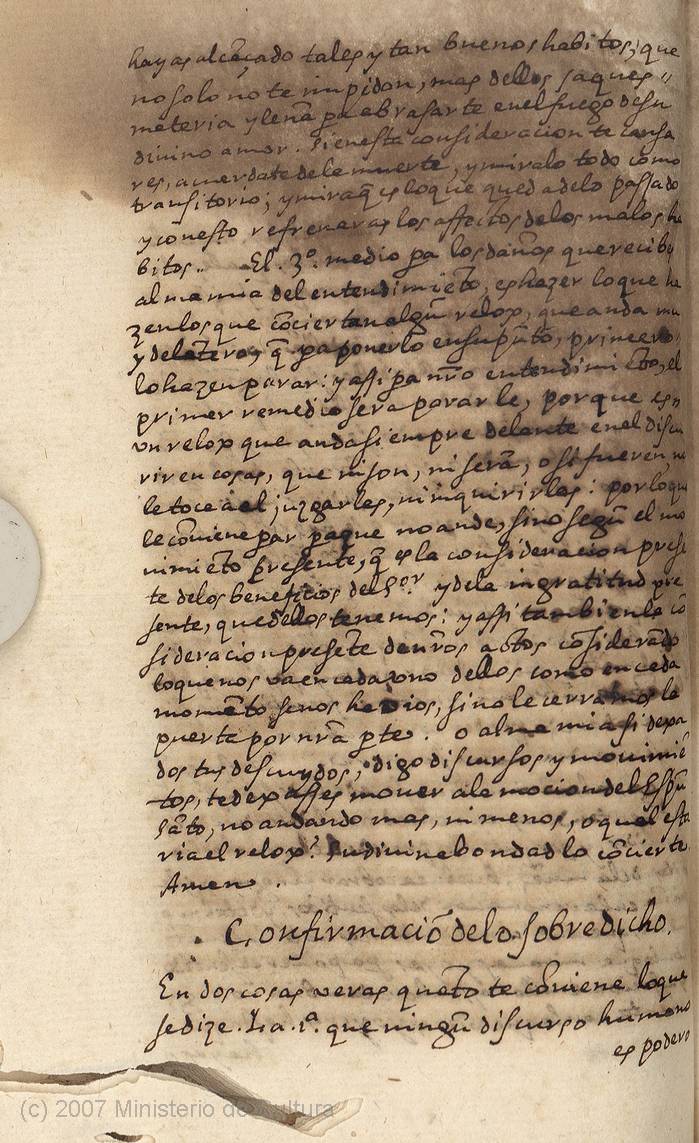 hayas alcãçado tales y tan buenos habitos, que
no solo no te impidan, mas dellos saques
materia y leña pa abrasarte en el fuego de su
divino amor. Si en esta consideracion te cansa
res, acuerdate dela muerte, y miralo todo como
transitorio; y mira q̃ es lo que queda delo passado
y con esto refreneras los affectos delos malos ha
bitos. El 3º. medio pa los daños que recibes
alma mia del entendimiẽto, es hazer lo que ha
zen los que cõciertan algũ relox, que anda mu
y delãtero, q̃ pa ponerlo en su pũto, primero
lo hazen parar: y assi pa nrõ entendimiẽto, el
primer remedio sera pararle, porque es
vn relox que anda siempre delante en el discu
rir en cosas, que ni son, ni serã, o si fueren no
le toca a el juzgarlas, ni inquirirlas: por lo que
le cõviene parar paque no ande, sino segũ el mo
uimiẽto presente, q̃ es la consideracion prese
te delos beneficios del Sor y dela ingratitud pre
sente, que dellos tenemos: y assi tambien la cõ
sideracion presẽte de nrõs actos cõsiderãdo
loque nos va en cada vno dellos como en cada
momẽto se nos da Dios, si no le cerramos la
puerta por nrã parte. o alma mia si dexa
dos tus descuydos, digo discursos y mouimiẽ
tos, te dexasses mouer ala mocion del Espũ
Sãto, no andando mas, ni menos, o que al esta
ria el relox! Su divina bondad lo cõcierte
Amen.
Confirmaciõ delo sobredicho.
En dos cosas veras quãto te cõuiene lo que
se dize. La 1ª. que ningũ discurso humano
es podero
(c) 2007 Ministerio de Cultura